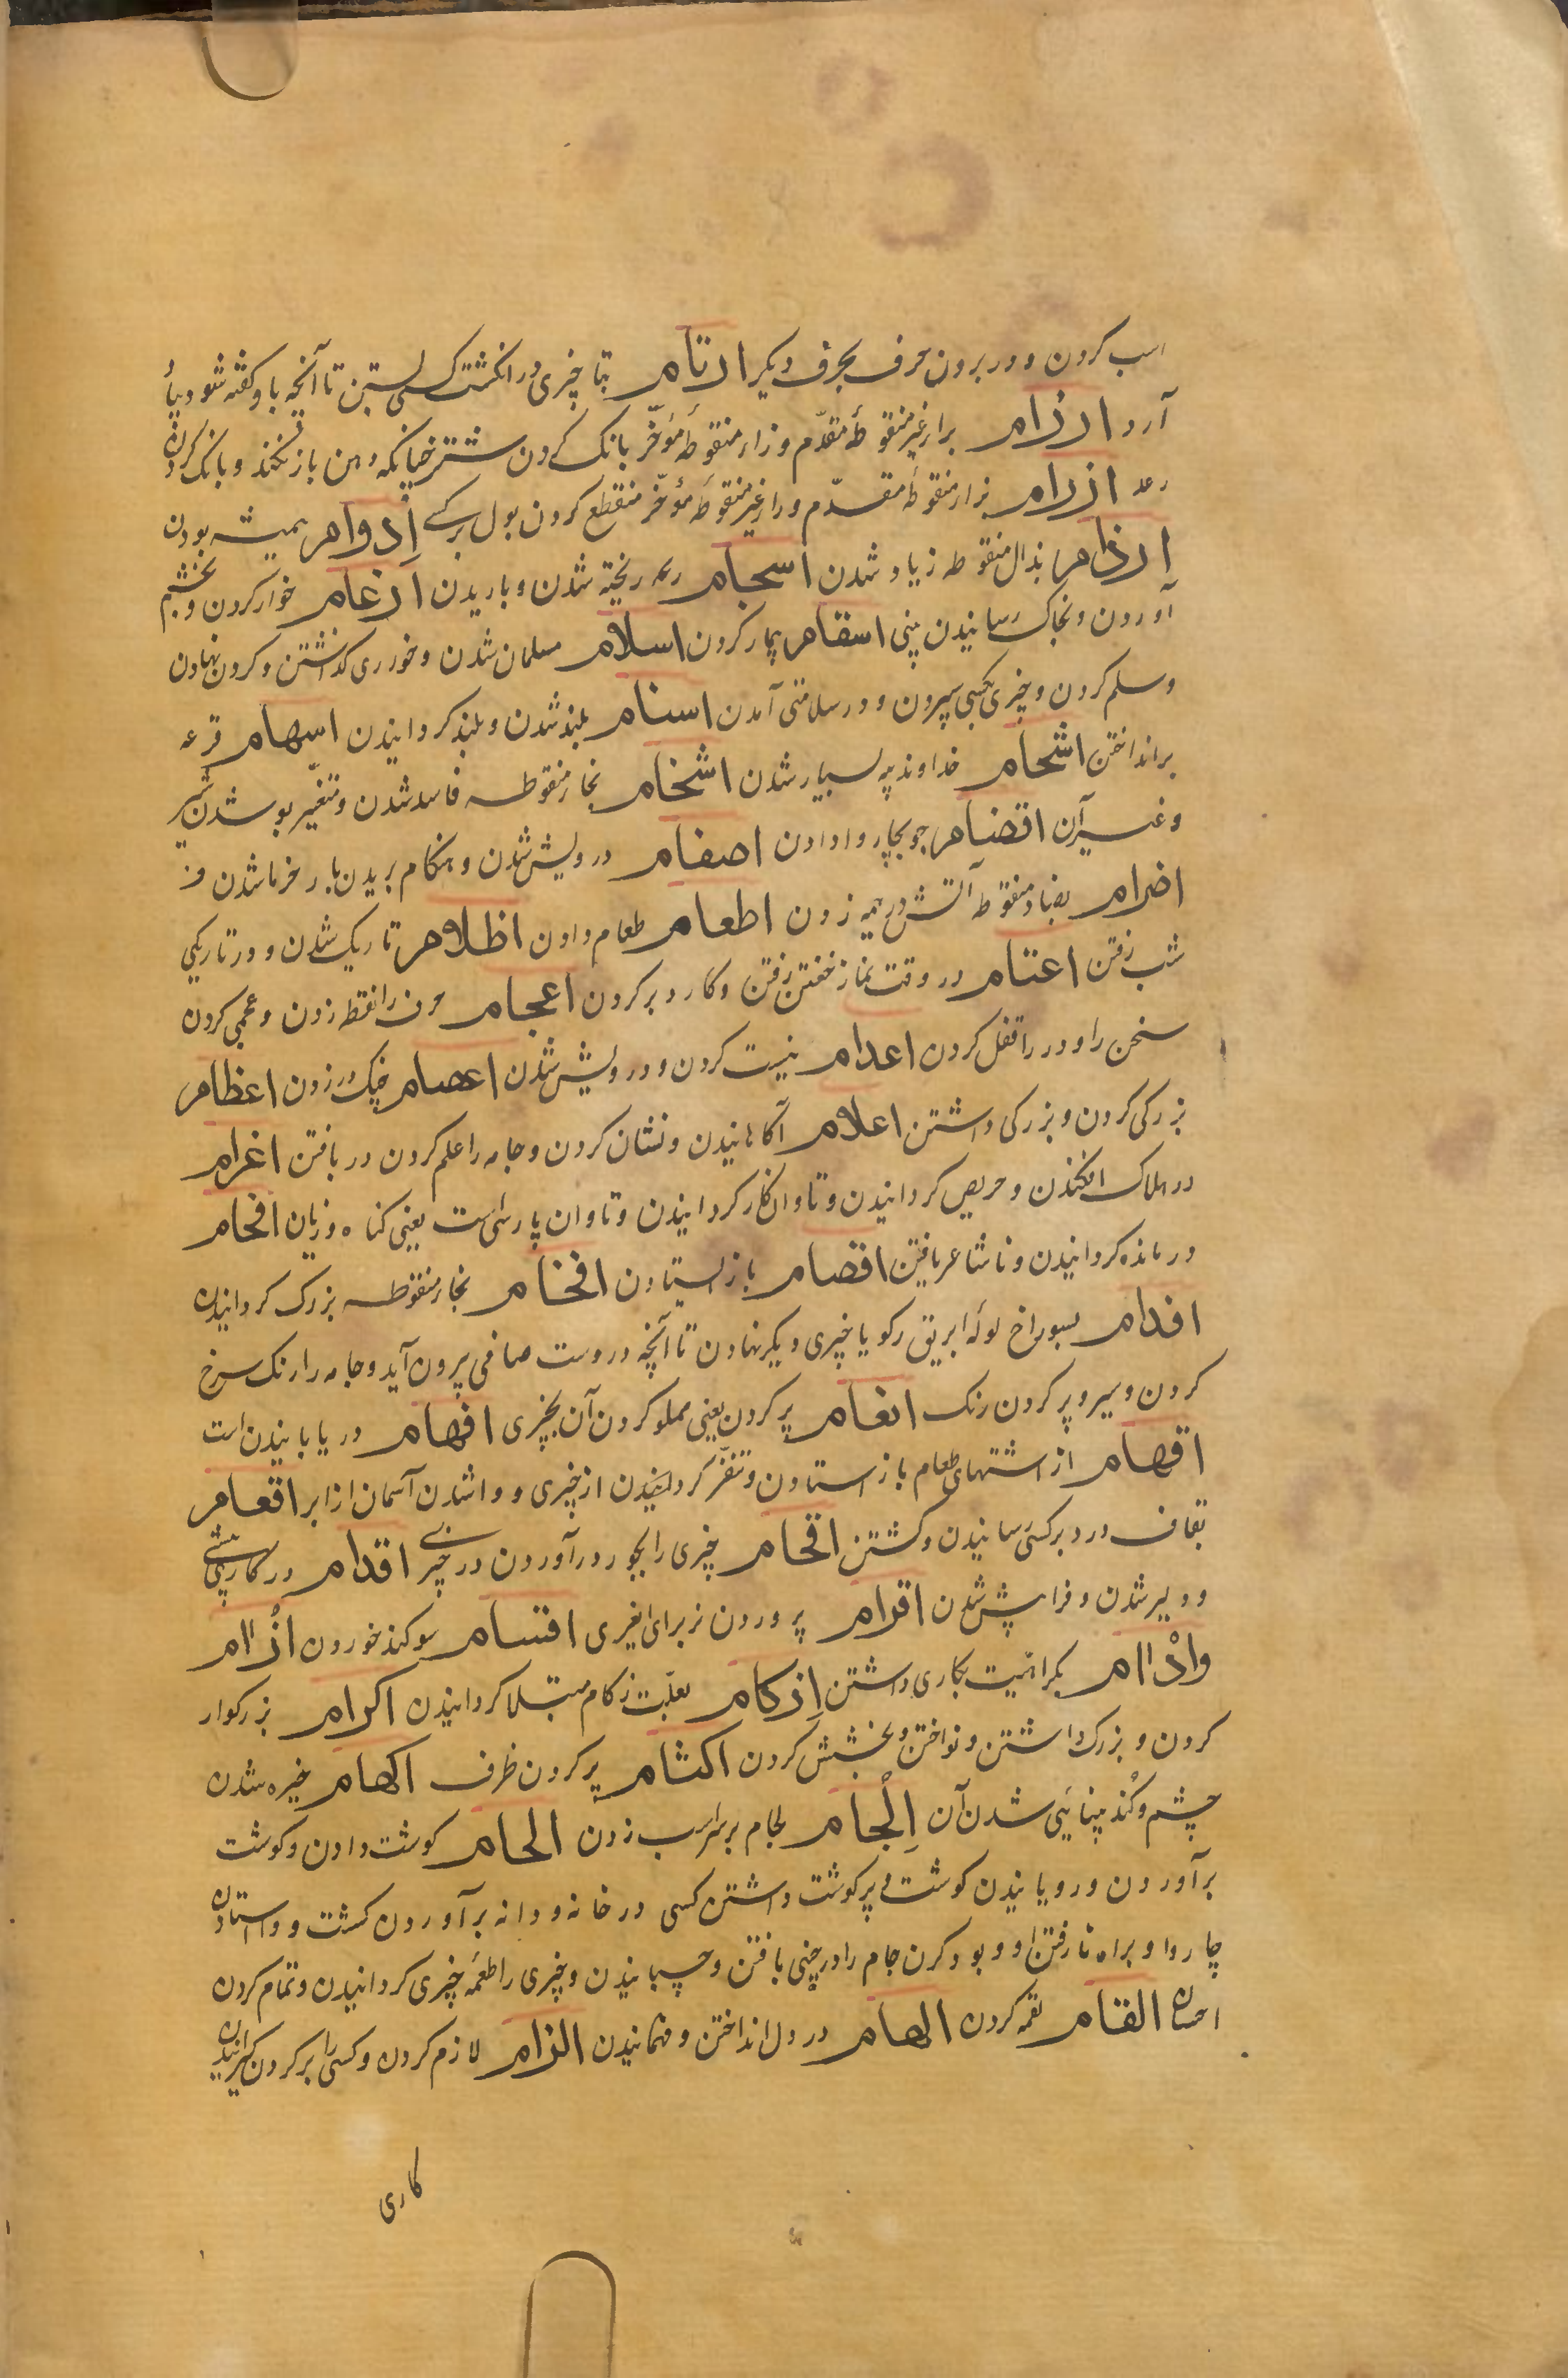 اسب کردن و در بردن حرف بحرف دیکر ارتام بتا چیزی در انکشت کسی بستن تا آنچه باو کفته شود بیاد
آرد ارزام براء غیر منقوطهٔ مقدّم و زاء منقوطهٔ مؤخّر بانک کردن شتر چنانکه دهن باز نکند و بانک کردن
رعد ازرام بزاء منقوطهٔ مقدّم و راء غیر منقوطهٔ مؤخّر منقطع کردن بول بر کسے اِدوام همیشه بودن
اِرذام بذال منقوطه زیاد شدن اسجام ریخته شدن و باریدن ارغام خوار کردن و بخشم
آوردن و بخاک رسانیدن بینی اسقام بیمار کردن اسلام مسلمان شدن و خوردری کذاشتن و کردن نهادن
و سلم کردن و چیزی بکسی سپردن و در سلامتی آمدن اسنام بلند شدن و بلند کردانیدن اسهام قرعه
برانداختن اشحام خداوند پیه بسیار شدن اشخام بخاء منقوطه فاسد شدن و متغیّر بو شدن شیر
و غیر آن اقضام جو بچاروا دادن اصفام درویش شدن و هنکام بریدن بار خرما شدن و
اضرام بضاد منقوطه آتش در هیمه زدن اطعام طعام دادن اظلام تاریک شدن و در تاریکی
شب رفتن اعتام در وقت نماز خفتن رفتن و کار دیر کردن اعجام حرف را نقطه زدن و عجمی کردن
سخن را و در را قفل کردن اعدام نیست کردن و درویش شدن اعصام چنک در زدن اعظام
بزرکی کردن و بزرکی داشتن اعلام آکاهانیدن و نشان کردن و جامه را علم کردن در بافتن اغرام
در هلاک افکندن و حریص کردانیدن و تاوان کار کردانیدن و تاوان پارسی است یعنی کناه و زیان افحام
درمانده کردانیدن و ناشاعر یافتن افصام باز ایستادن افخام بخاء منقوطه بزرک کردانیدن
افدام بسوراخ لولهٔ ابریق رکو یا چیزی دیکر نهادن تا آنچه دروست صافی بیرون آید و جامه را رنک سرخ
کردن و سیر و پر کردن رنک افعام پر کردن یعنی مملو کردن آن بچیزی افهام دریابانیدن است
اقهام از اشتهای طعام باز استادن و تنفّر کردانیدن از چیزی و واشدن آسمان از ابر اقعام
بقاف درد بر کسی رسانیدن و کشتن اقحام چیزی را بجور در آوردن در چیزے اقدام در کار پیشے
و دلیر شدن و فرا پیش شدن اقرام پروردن نر برای ایغری اقسام سوکند خوردن ازاام
واذاام بکراهیت بکاری داشتن اِزکام بعلّت زکام مبتلا کردانیدن اکرام بزرکوار
کردن و بزرک داشتن و نواختن و بخشش کردن اکثام پر کردن ظرف اکهام خیره شدن
چشم و کُند بینائی شدن آن اِلْجام لجام بر سر اسب زدن الحام کوشت دادن و کوشت
برآوردن و رویانیدن کوشت و پر کوشت داشتن کسی در خانه و دانه برآوردن کشت و واستادن
چاروا و براه نا رفتن او و بود کردن جام را در چنی بافتن و چسبانیدن و چیزی را طعمهٔ چیزی کردانیدن و تمام کردن
احسان القام لقمه کردن الهام در دل انداختن و فهمانیدن الزام لازم کردن و کسی را بر کردن کیرانیدن
کاری